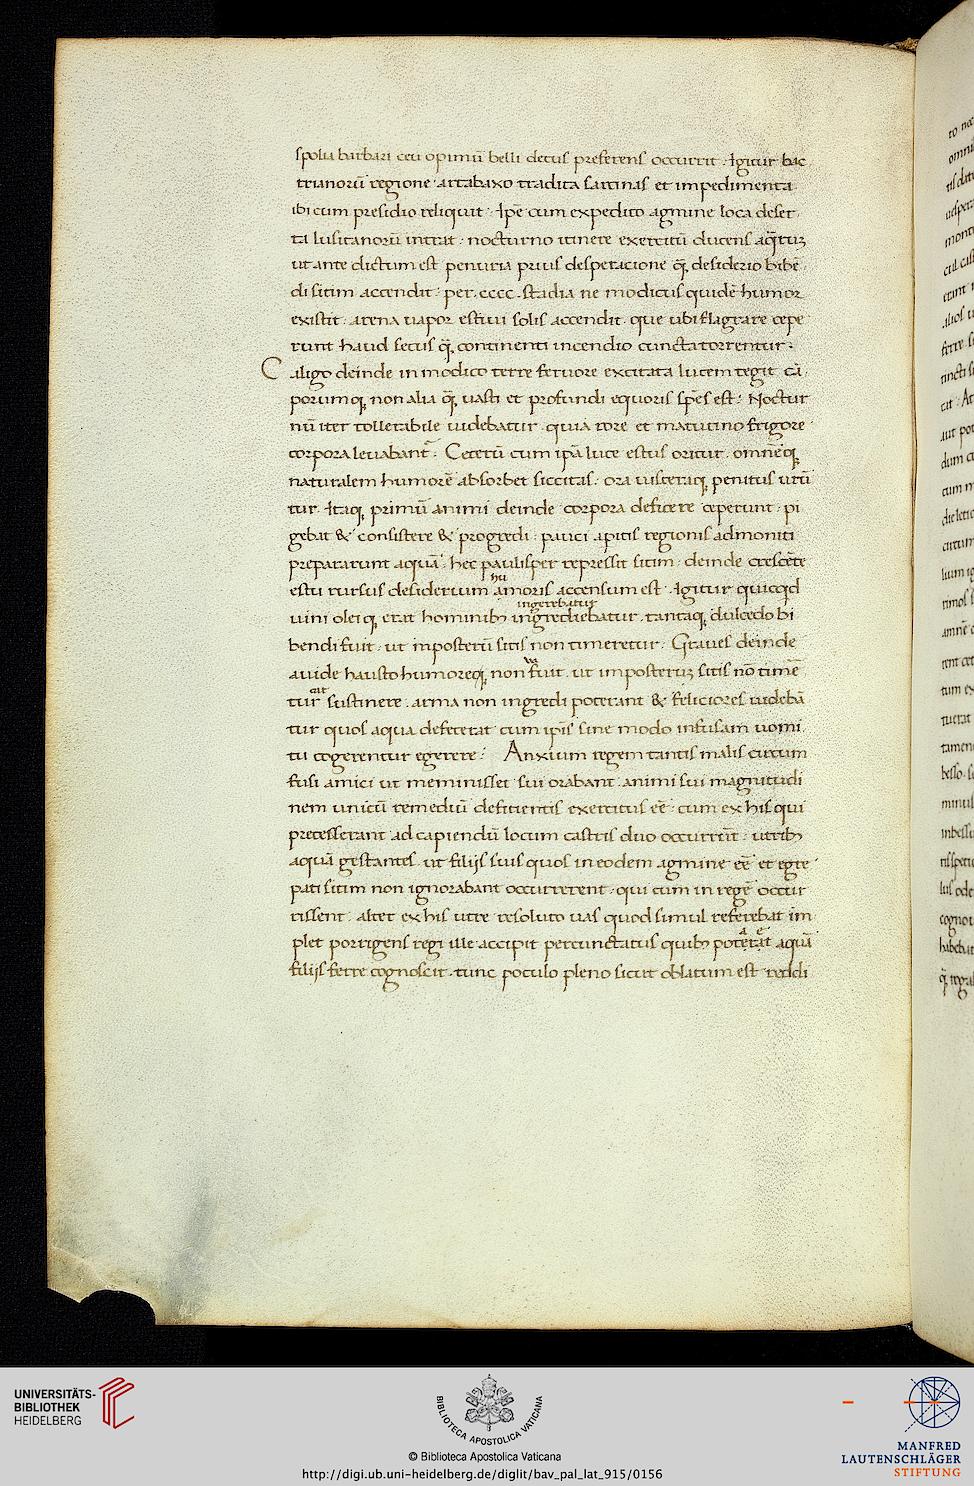 spolia barbari ceu opimū belli decus preferens occurrit · Igitur bac
trianorū regione artabaxo tradita sarcinas et impedimenta
ibi cum presidio reliquit · Ipē cum expedito agmine loca deser
ta lusitanorū intrat · nocturno itinere exercitū ducens aq̄rūz
ut ante dictum est penuria prius desperacione q̄ desiderio bibē
di sitim accendit · per · cccc · stadia ne modicus quidē humor
existit · arena vapor estiui solis accendit · que ubi flagrare cepe
runt haud secus q̄ continenti incendio cuncta torrentur :
Caligo deinde in modico terre feruore excitata lucem tegit cā
porumq; non alia q̄ uasti et profundi equoris spēs est : Noctur
nū iter tollerabile uidebatur · quia rore et matutino frigore
corpora leuabant᷑ · Ceterū cum ipā luce estus oritur · omnēq;
naturalem humorē absorbet siccitas · ora uisceraq; penitus urū
tur · Itaq; primū animi deinde corpora deficere ceperunt · pi
gebat & consistere & progredi · pauci apitis regionis admoniti
preparatunt aquā · hec paulisper repressit sitim · deinde crescēte
hu
estu rursus desiderium amoris accensum est · Igitur quicqd
ingerebatur
uini oleiq; erat hominib; ingrediebatur · tantaq; dulcedo bi
bendi fuit · ut inposterū sitis non timeretur · Graues deinde
auide hausto humoreq; non fuit · ut imposteruz sitis nō timē
tur sustinere · arma non ingredi poterant & feliciores uidebā
tur quos aqua defecerat cum ipīs sine modo infusam uomi
tu cogerentur egerere : Anxium regem tantis malis circum
fusi amici ut meminisset sui orabant · animi sui magnitudi
nem unicū remediū deficientis exercitus eē · cum ex his qui
precesserant ad capiendū locum castris duo occurrūt · utrib;
aquā gestantes · ut filijs suis quos in eodem agmine eē et egre
pati sitim non ignorabant occurrerent · qui cum in regē occur
rissent · alter ex his utre resoluto uas quod simul referebat im
plet porrigens regi ille accipit percunctatus quib; poterat aquā
filijs ferre cognoscit · tunc poculo pleno sicut oblatum est reddi
UNIVERSITÄTS-
BIBLIOTHEK
HEIDELBERG
BIBLIOTECA APOSTOLICA VATICANA
© Biblioteca Apostolica Vaticana
http://digi.ub.uni-heidelberg.de/diglit/bav_pal_lat_915/0156
MANFRED
LAUTENSCHLÄGER
STIFTUNG